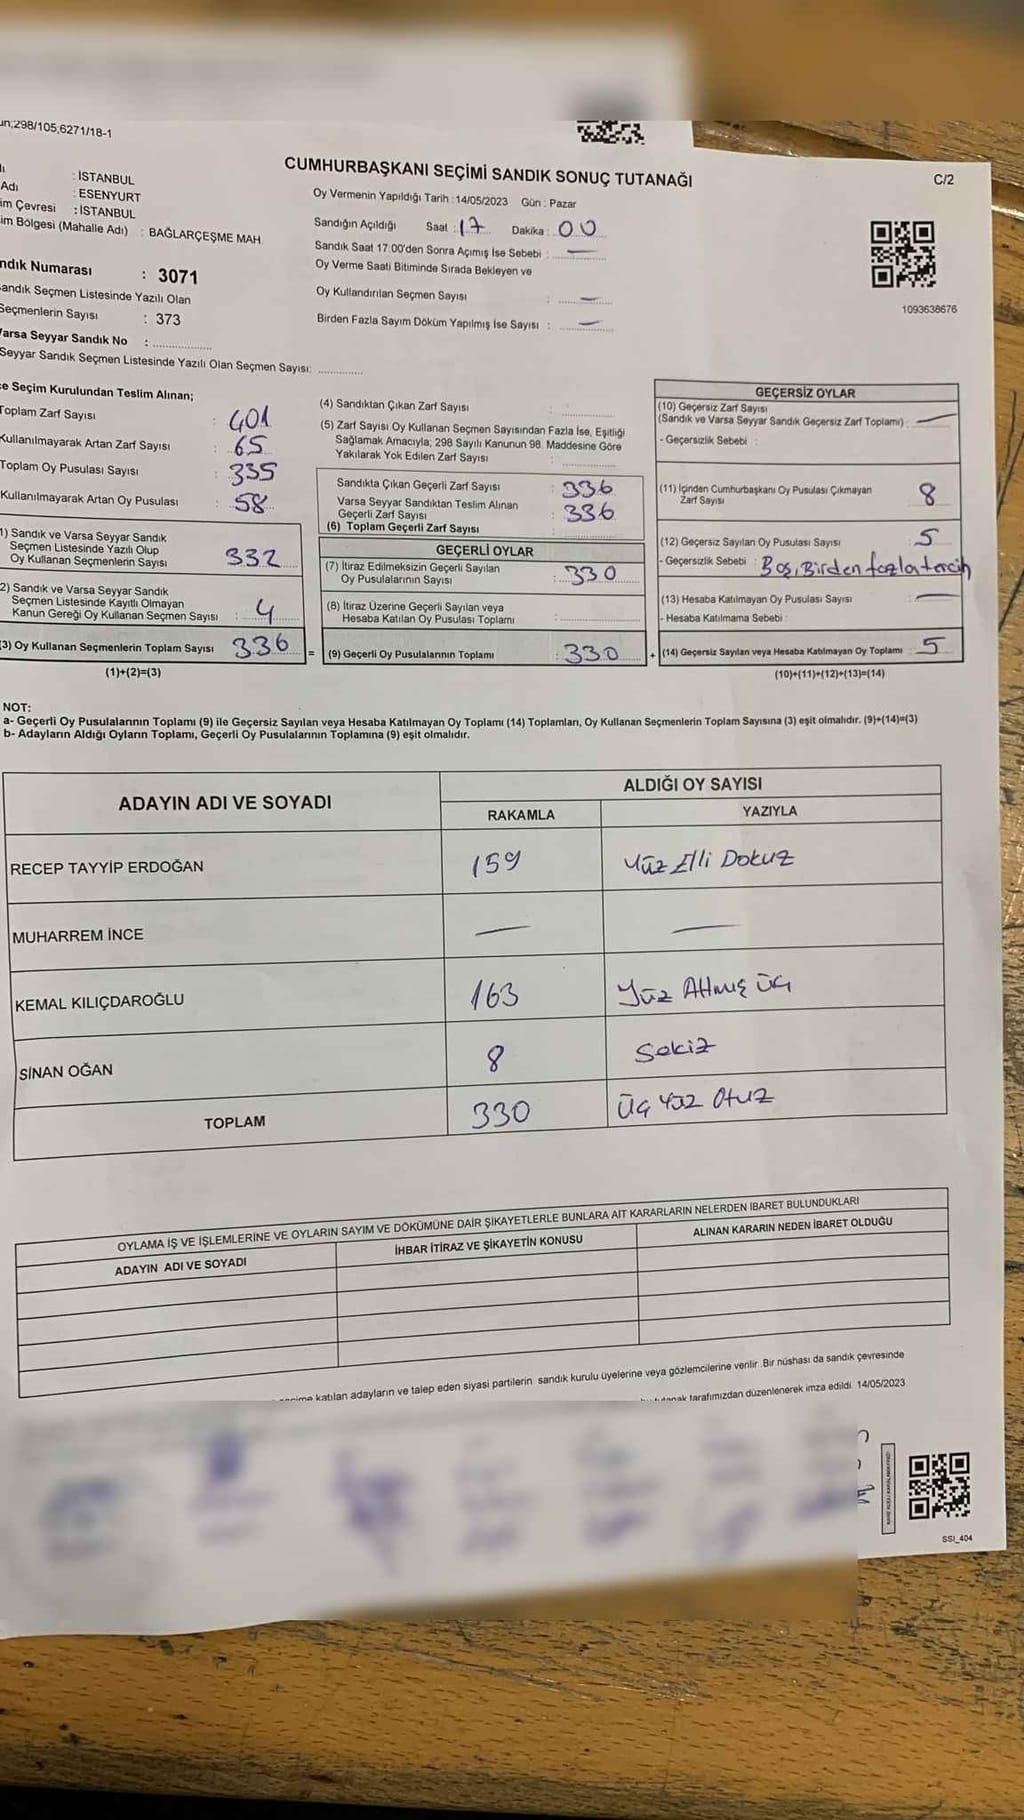 298/105,6271/18-1
CUMHURBAŞKANI SEÇİMİ SANDIK SONUÇ TUTANAĞI
C/2
: İSTANBUL
Adı : ESENYURT
im Çevresi : İSTANBUL
im Bölgesi (Mahalle Adı) : BAĞLARÇEŞME MAH.
ndık Numarası : 3071
andık Seçmen Listesinde Yazılı Olan
Seçmenlerin Sayısı : 373
Varsa Seyyar Sandık No :
Seyyar Sandık Seçmen Listesinde Yazılı Olan Seçmen Sayısı:
Oy Vermenin Yapıldığı Tarih : 14/05/2023 Gün : Pazar
Sandığın Açıldığı Saat : 17 Dakika : 00
Sandık Saat 17:00'den Sonra Açımış İse Sebebi : —
Oy Verme Saati Bitiminde Sırada Bekleyen ve
Oy Kullandırılan Seçmen Sayısı : —
Birden Fazla Sayım Döküm Yapılmış İse Sayısı : —
1093638676
çe Seçim Kurulundan Teslim Alınan;
Toplam Zarf Sayısı : 401
Kullanılmayarak Artan Zarf Sayısı : 65
Toplam Oy Pusulası Sayısı : 335
Kullanılmayarak Artan Oy Pusulası : 58
1) Sandık ve Varsa Seyyar Sandık
Seçmen Listesinde Yazılı Olup
Oy Kullanan Seçmenlerin Sayısı 332
2) Sandık ve Varsa Seyyar Sandık
Seçmen Listesinde Kayıtlı Olmayan
Kanun Gereği Oy Kullanan Seçmen Sayısı : 4
3) Oy Kullanan Seçmenlerin Toplam Sayısı 336
(1)+(2)=(3)
(4) Sandıktan Çıkan Zarf Sayısı :
(5) Zarf Sayısı Oy Kullanan Seçmen Sayısından Fazla İse, Eşitliği
Sağlamak Amacıyla; 298 Sayılı Kanunun 98. Maddesine Göre
Yakılarak Yok Edilen Zarf Sayısı :
Sandıkta Çıkan Geçerli Zarf Sayısı : 336
Varsa Seyyar Sandıktan Teslim Alınan
Geçerli Zarf Sayısı : 336
(6) Toplam Geçerli Zarf Sayısı
GEÇERLİ OYLAR
(7) İtiraz Edilmeksizin Geçerli Sayılan
Oy Pusulalarının Sayısı : 330
(8) İtiraz Üzerine Geçerli Sayılan veya
Hesaba Katılan Oy Pusulası Toplamı :
= (9) Geçerli Oy Pusulalarının Toplamı : 330
GEÇERSİZ OYLAR
(10) Geçersiz Zarf Sayısı
(Sandık ve Varsa Seyyar Sandık Geçersiz Zarf Toplamı) : —
- Geçersizlik Sebebi :
(11) İçinden Cumhurbaşkanı Oy Pusulası Çıkmayan
Zarf Sayısı 8
(12) Geçersiz Sayılan Oy Pusulası Sayısı : 5
- Geçersizlik Sebebi : Boş, Birden fazla tercih
(13) Hesaba Katılmayan Oy Pusulası Sayısı : —
- Hesaba Katılmama Sebebi :
+ (14) Geçersiz Sayılan veya Hesaba Katılmayan Oy Toplamı : 5
(10)+(11)+(12)+(13)=(14)
NOT:
a- Geçerli Oy Pusulalarının Toplamı (9) ile Geçersiz Sayılan veya Hesaba Katılmayan Oy Toplamı (14) Toplamları, Oy Kullanan Seçmenlerin Toplam Sayısına (3) eşit olmalıdır. (9)+(14)=(3)
b- Adayların Aldığı Oyların Toplamı, Geçerli Oy Pusulalarının Toplamına (9) eşit olmalıdır.
ADAYIN ADI VE SOYADI ALDIĞI OY SAYISI
RAKAMLA YAZIYLA
RECEP TAYYİP ERDOĞAN 159 Yüz Elli Dokuz
MUHARREM İNCE — —
KEMAL KILIÇDAROĞLU 163 Yüz Altmış üç
SİNAN OĞAN 8 Sekiz
TOPLAM 330 Üç Yüz Otuz
OYLAMA İŞ VE İŞLEMLERİNE VE OYLARIN SAYIM VE DÖKÜMÜNE DAİR ŞİKAYETLERLE BUNLARA AİT KARARLARIN NELERDEN İBARET BULUNDUKLARI
ADAYIN ADI VE SOYADI İHBAR İTİRAZ VE ŞİKAYETİN KONUSU ALINAN KARARIN NEDEN İBARET OLDUĞU
katılan adayların ve talep eden siyasi partilerin sandık kurulu üyelerine veya gözlemcilerine verilir. Bir nüshası da sandık çevresinde
tarafımızdan düzenlenerek imza edildi. 14/05/2023
SSI_404